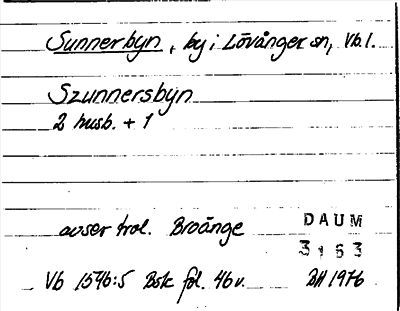 Sunnerbyn, by i Lövånger sn, Vb l.
Szunnersbyn
2 husb. + 1
avser trol. Broänge
DAUM
3163
Vb 1546:5 Bsk fol. 46v. BH 1976